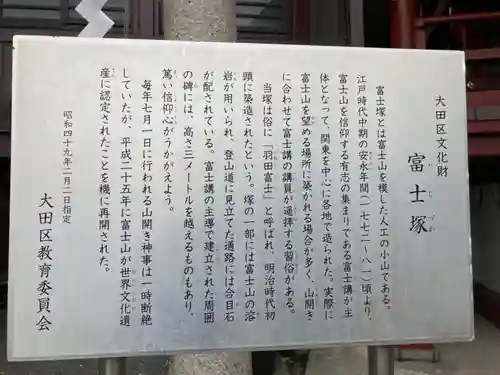 大田区文化財
富士塚
ふじづか
富士塚とは富士山を模した人工の小山である。
江戸時代中期の安永年間(一七七二〜八一)頃より、
富士山を信仰する有志の集まりである富士講が主
体となって、関東を中心に各地で造られた。実際に
富士山を望める場所に築かれる場合が多く、山開き
に合わせて富士講の講員が遥拝する習俗がある。
当塚は俗に「羽田富士」と呼ばれ、明治時代初
頭に築造されたという。塚の一部には富士山の溶
岩が用いられ、登山道に見立てた通路には合目石
が配されている。富士講の主導で建立された周囲
の碑には、高さ三メートルを越えるものもあり、
篤い信仰心がうかがえよう。
毎年七月一日に行われる山開き神事は一時断絶
していたが、平成二十五年に富士山が世界文化遺
産に認定されたことを機に再開された。
昭和四十九年二月二日指定
大田区教育委員会